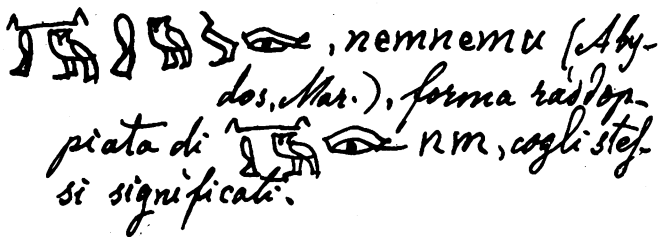 , nemnemu (Aby-
dos, Mar.), forma raddop-
piata di nm, cogli stes-
si significati.